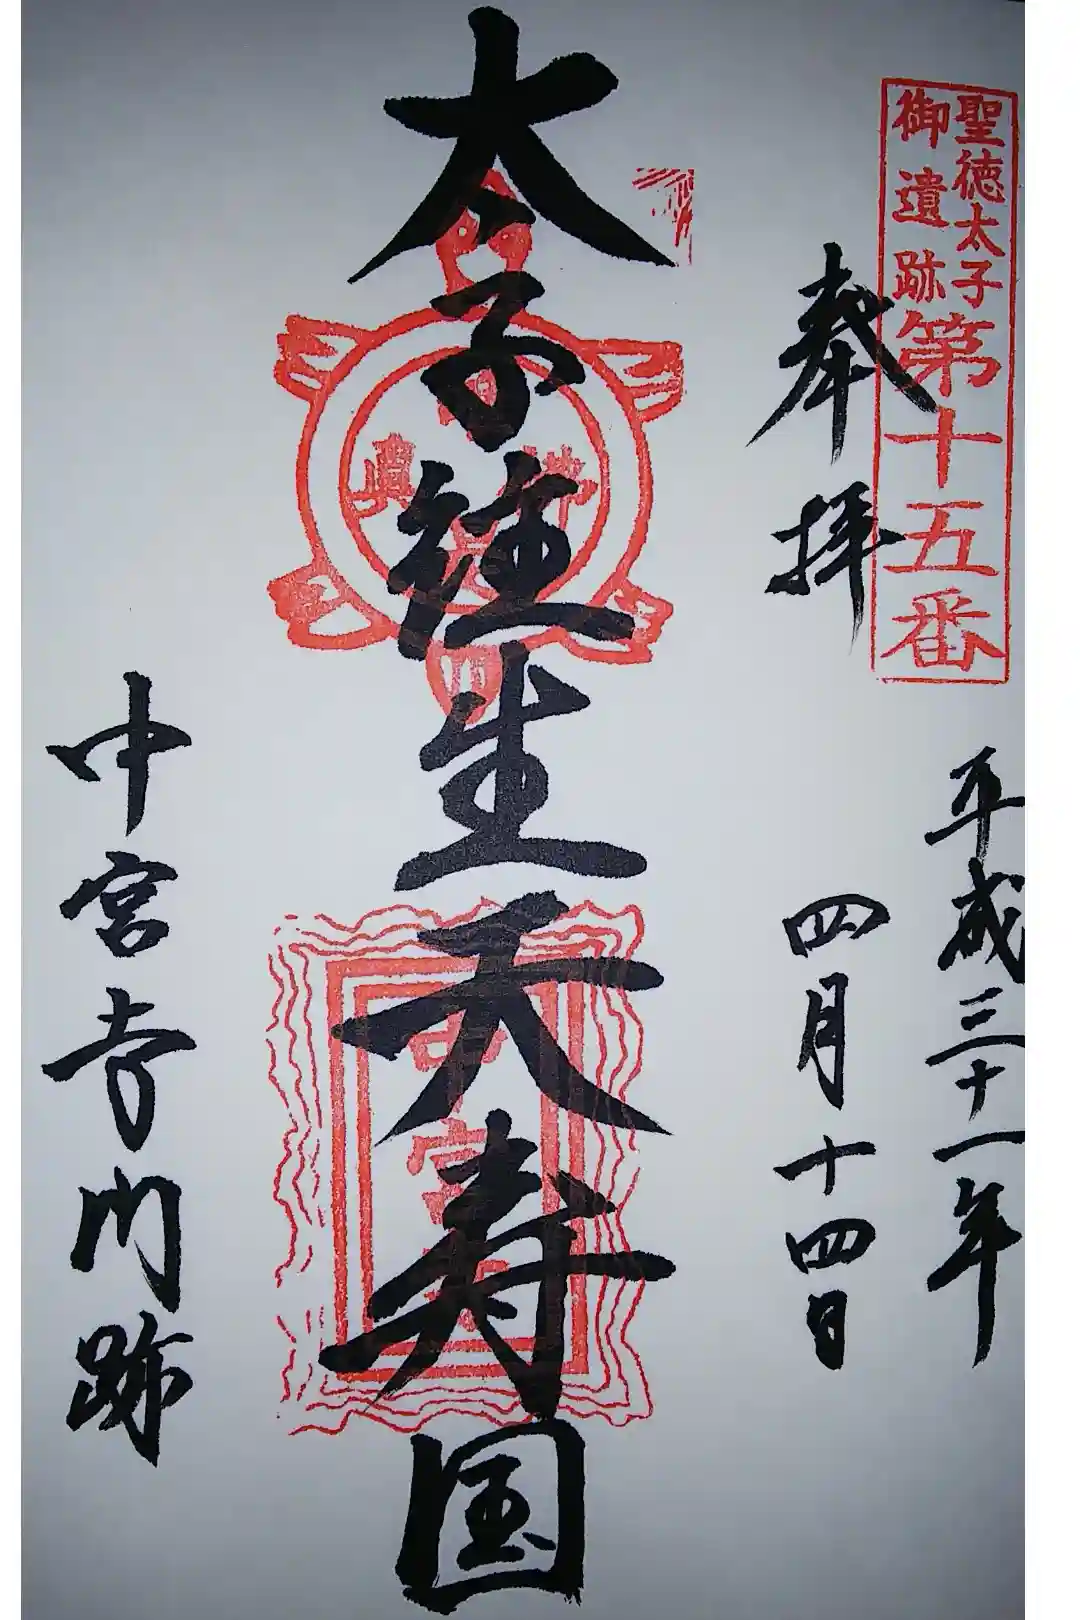 聖徳太子
御遺跡
第十五番
奉拝
平成三十一年
四月十四日
太子往生天寿国
中宮寺門跡